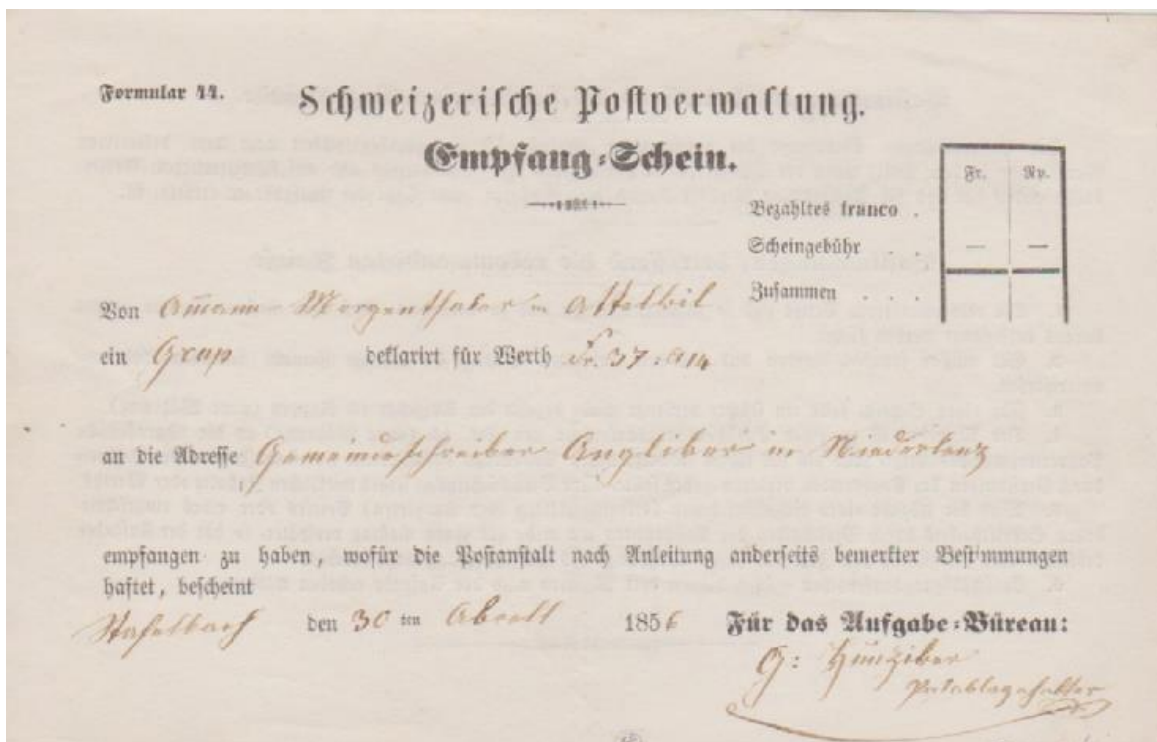 Formular 44.
Schweizerische Postverwaltung.
Empfang-Schein.
Fr. Rp.
Bezahltes franco .
Scheingebühr . . — —
Zusammen . . . .
Von Amann Morgenthaler in Attelwil
ein Grup deklarirt für Werth Fr. 37.
an die Adresse Gemeindeschreiber in Niederlenz
empfangen zu haben, wofür die Postanstalt nach Anleitung anderseits bemerkter Bestimmungen
haftet, bescheint
Staffelbach den 30 ten Aprill 1856 Für das Aufgabe-Büreau:
G: Hunziker
Postablagehalter